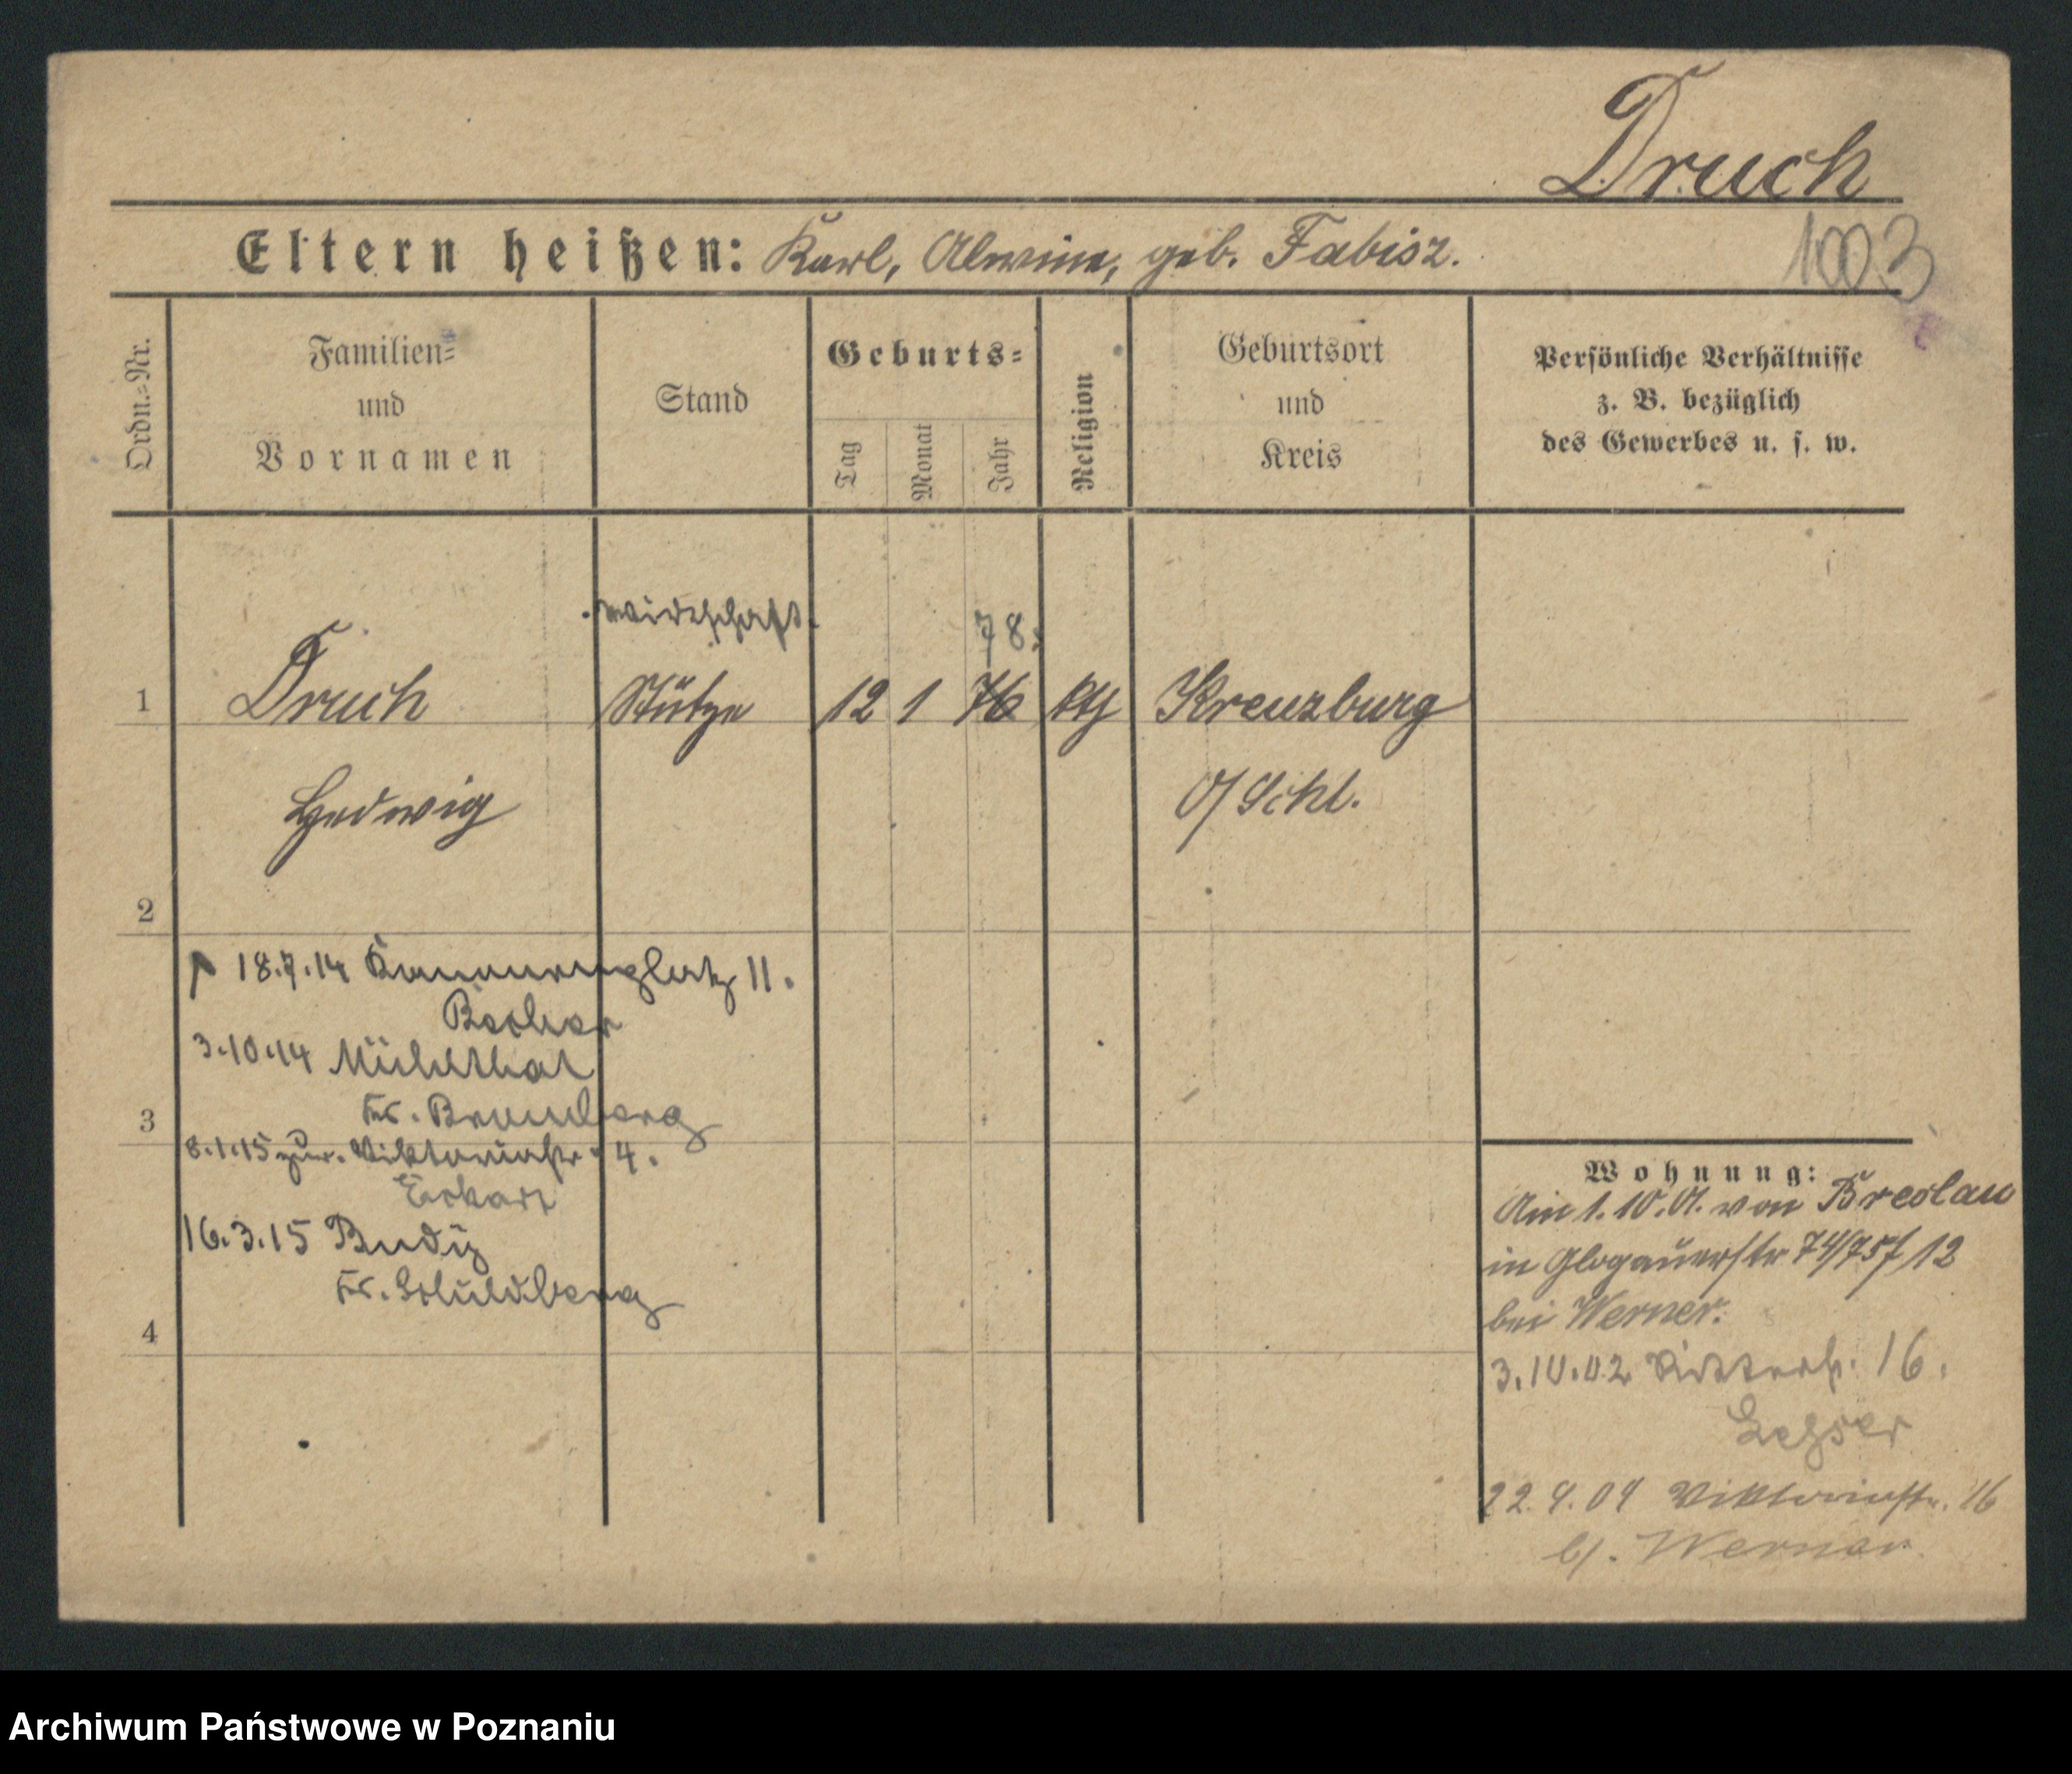 Druch
Eltern heißen: Karl, Alwine, geb. Fabisz.
1003
Ordn.=Nr.
Familien=
und
Vornamen
Stand
Geburts=
Tag
Monat
Jahr
Religion
Geburtsort
und
Kreis
Persönliche Verhältnisse
z. B. bezüglich
des Gewerbes u. s. w.
wirtschaft.
78.
1 Druch Stütze 12 1 76 kth Kreuzburg
Hedwig O/Schl.
2
18.7.14 11.
3.10.14 Mühlthal
3 Kr. Bromberg
8.1.15 zur. Viktoriastr. 4.
Eckart
16.3.15 Budzig
Kr. Schildberg
4
Wohnung:
Am 1.10.01. von Breslau
in Glogauerstr 74/75 f 12
bei Werner.
3.10.02 Ritterstr. 16.
22.9.04 Viktoriastr. 16
b/. Werner
Archiwum Państwowe w Poznaniu